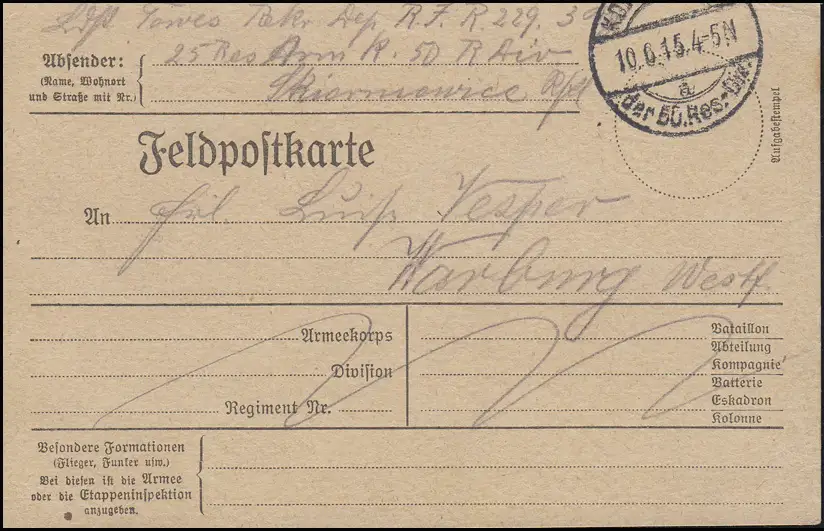 Ldst. Töwes Rekr Dep R. I. R. 229. 3
Absender: 25 Res Arm K. 50 R Div
(Name, Wohnort
und Straße mit Nr.)
Skierniewice
10.6.15.4-5N
a
der 50.Res.-Div.
Aufgabestempel
Feldpostkarte
An Frl. Luise Vesper
Warburg Westf.
Armeekorps
Division
Regiment Nr.
Bataillon
Abteilung
Kompagnie
Batterie
Eskadron
Kolonne
Besondere Formationen
(Flieger, Funker usw.)
Bei diesen ist die Armee
oder die Etappeninspektion
anzugeben.